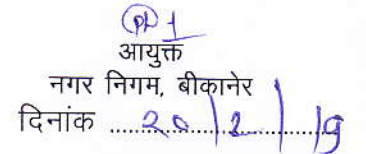 आयुक्त
नगर निगम, बीकानेर
दिनांक ....20/2/19